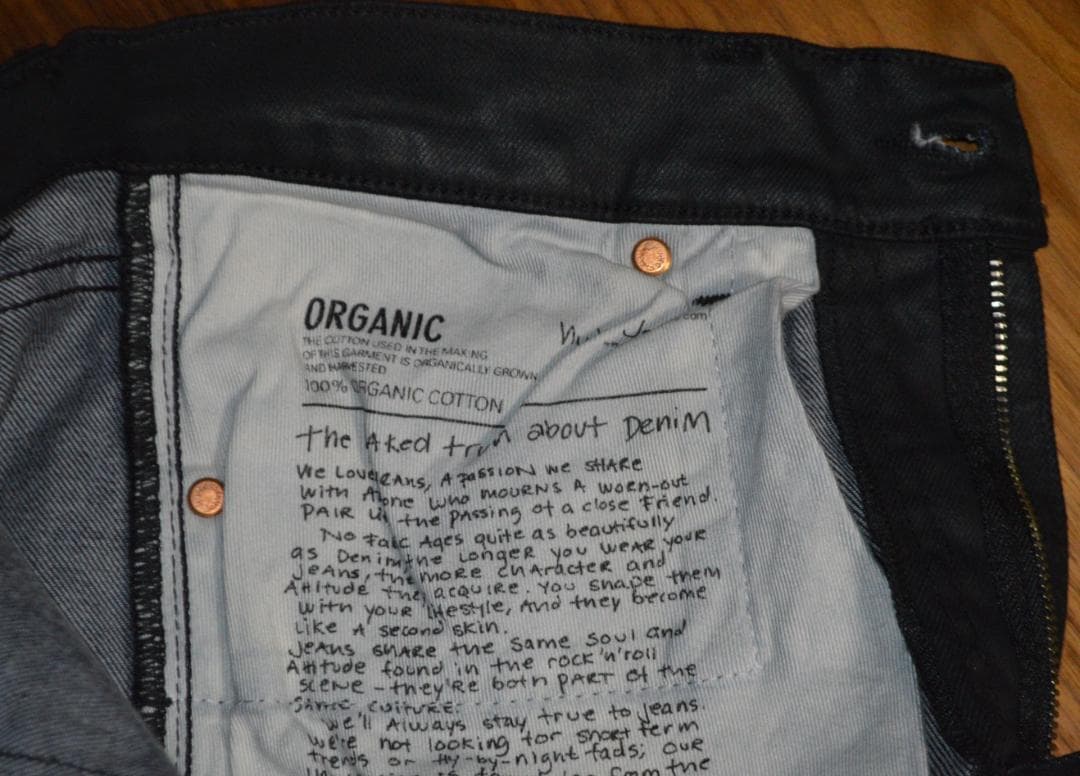 ORGANIC
THE COTTON USED IN THE MAKING
OF THIS GARMENT IS ORGANICALLY GROWN
AND HARVESTED
100% ORGANIC COTTON
com
The Aked about Denim
We Love eans, A passion we share
with A one who mourns A worn-out
PAIR the passing of a close friend.
No Ages quite as beautifully
as Denim the longer you wear your
jeans, the more character and
Attitude they acquire. You shape them
with your lifestyle, And they become
like A second skin.
Jeans share the same soul and
Attitude found in the rock 'n' roll
scene - they're both part of the
same culture.
we'll Always stay true to jeans.
we're not looking for short term
trends or fly-by-night fads; our
from the